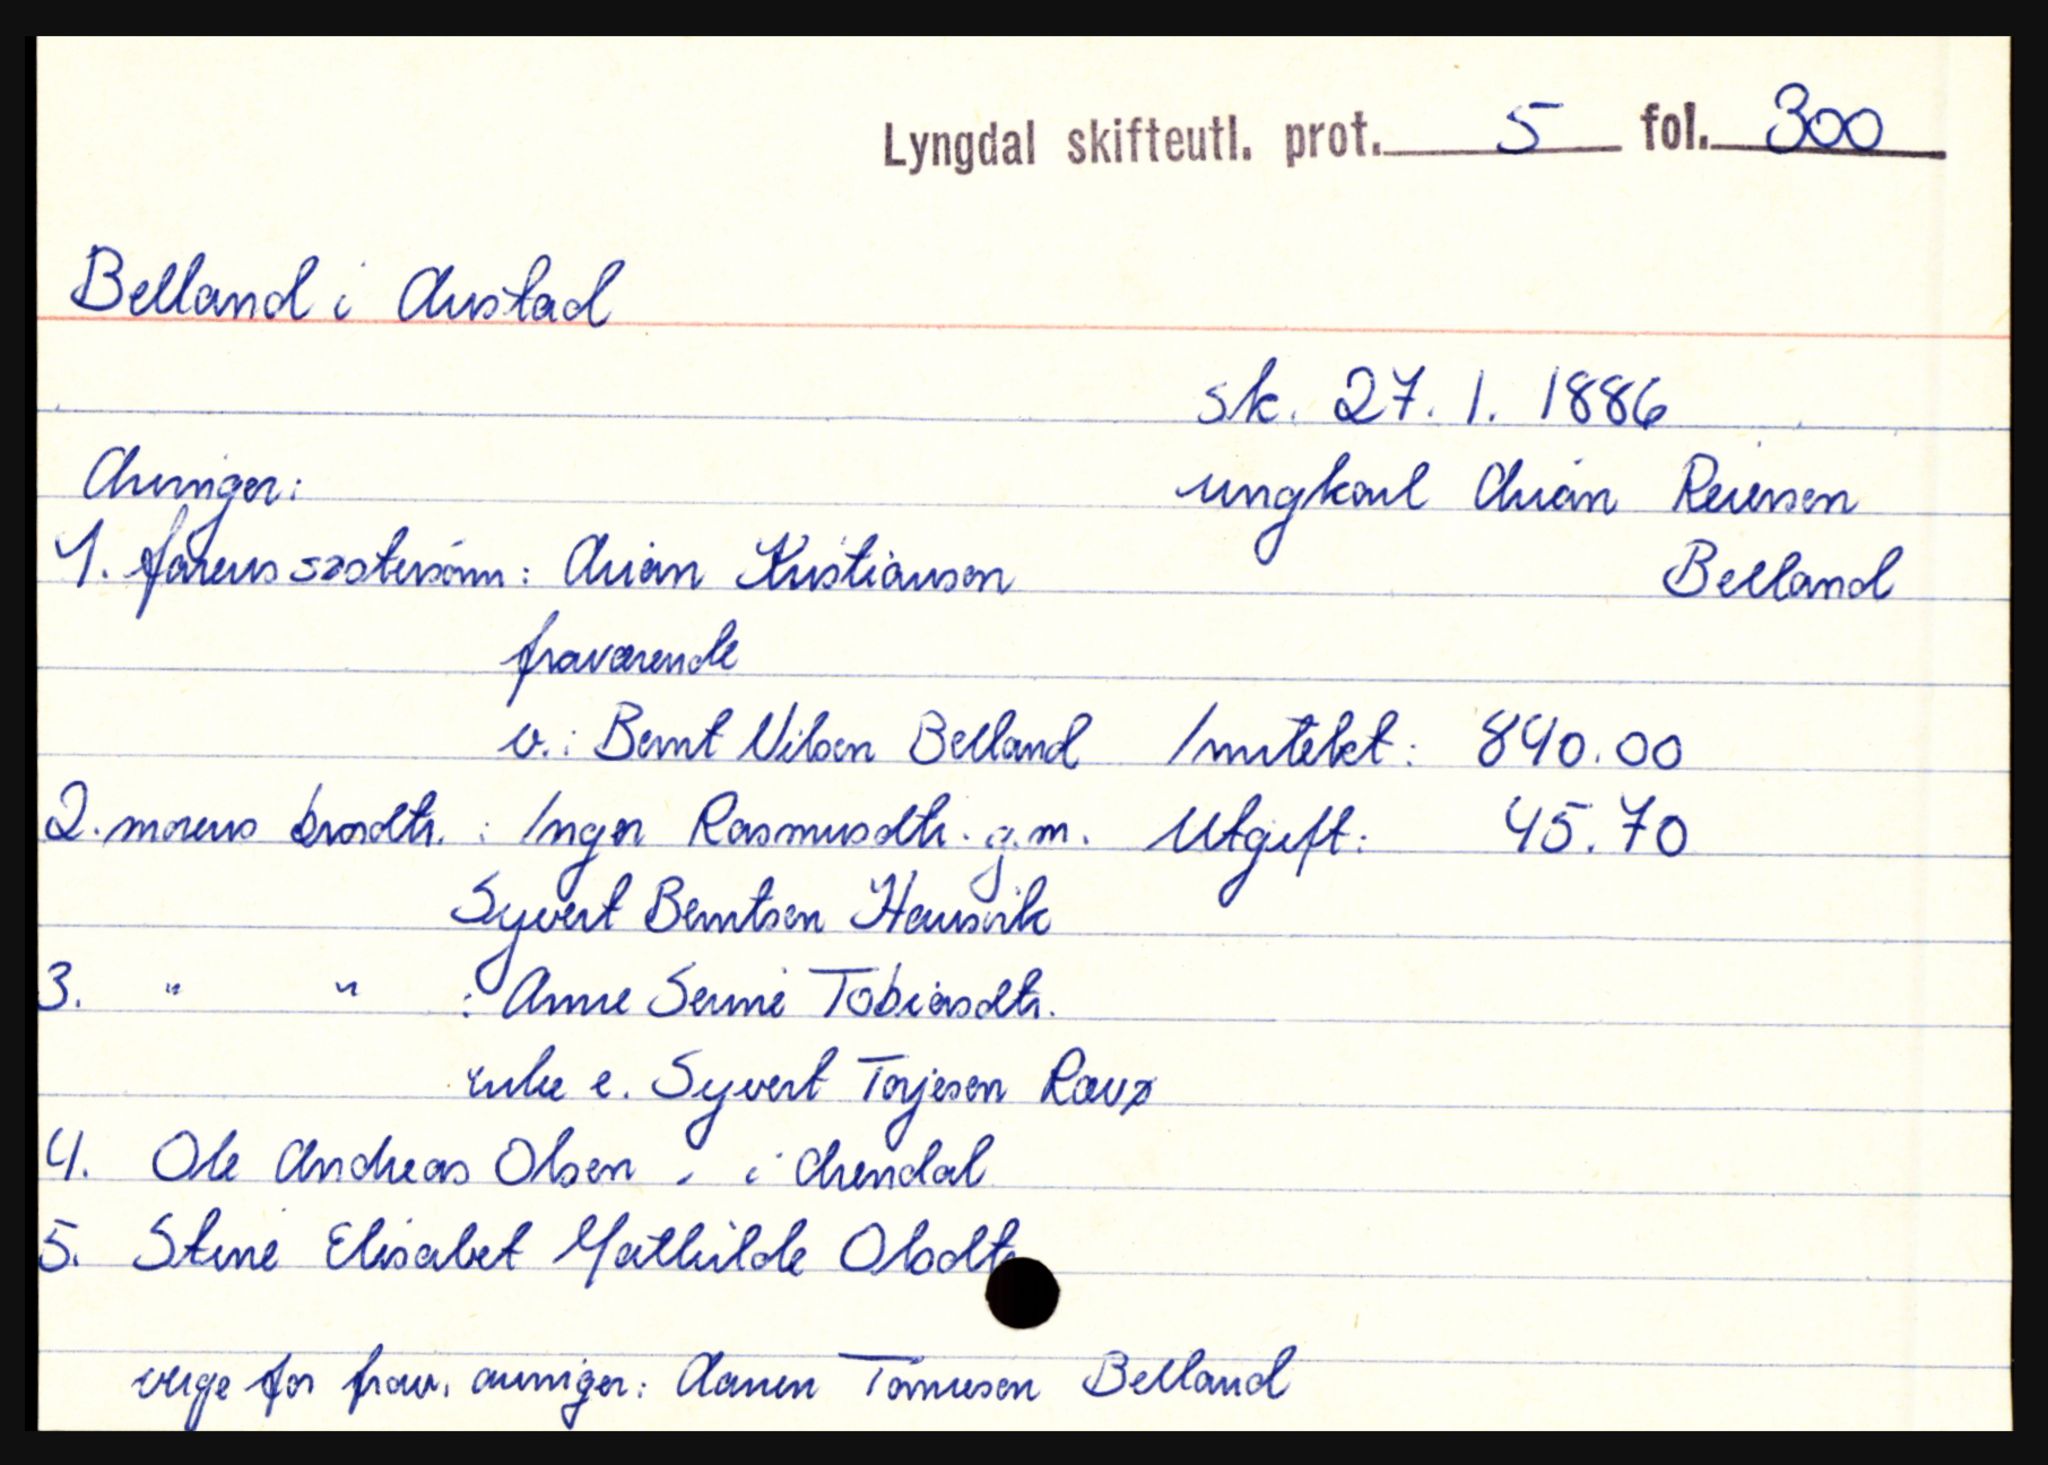 Lyngdal skifteutl. prot. 5 fol. 300
Belland i Austad
sk. 27. 1. 1886
Arvinger:
ungkarl Arian Reiersen
Belland
1. farens søstersønn: Arian Kristiansen
fraværende
v.: Bernt Nilsen Belland Inntekt: 840.00
2. morens brordtr. : Inger Rasmusdtr. g.m. Utgift: 45.70
Syvert Berntsen Hausvik
3. " " : Anne Serine Tobiasdtr.
enke e. Syvert Torjesen Røvø
4. Ole Andreas Olsen, i Arendal
5. Stine Elisabet Mathilde Olsdtr
verge for frav. arvinger: Aanen Tomesen Belland